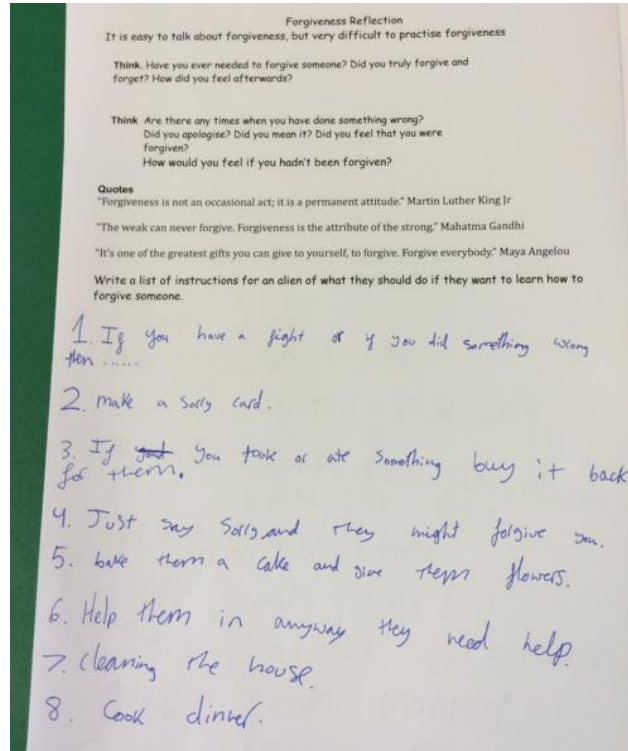 Forgiveness Reflection
It is easy to talk about forgiveness, but very difficult to practise forgiveness
Think. Have you ever needed to forgive someone? Did you truly forgive and
forget? How did you feel afterwards?
Think Are there any times when you have done something wrong?
Did you apologise? Did you mean it? Did you feel that you were
forgiven?
How would you feel if you hadn't been forgiven?
Quotes
"Forgiveness is not an occasional act; it is a permanent attitude." Martin Luther King Jr
"The weak can never forgive. Forgiveness is the attribute of the strong." Mahatma Gandhi
"It's one of the greatest gifts you can give to yourself, to forgive. Forgive everybody." Maya Angelou
Write a list of instructions for an alien of what they should do if they want to learn how to
forgive someone.
1. If you have a fight or if you did something wrong
then ......
2. make a sorry card.
3. If you took or ate something buy it back
for them.
4. Just say sorry and they might forgive you.
5. bake them a cake and give them flowers.
6. Help them in anyway they need help.
7. Cleaning the house.
8. Cook dinner.